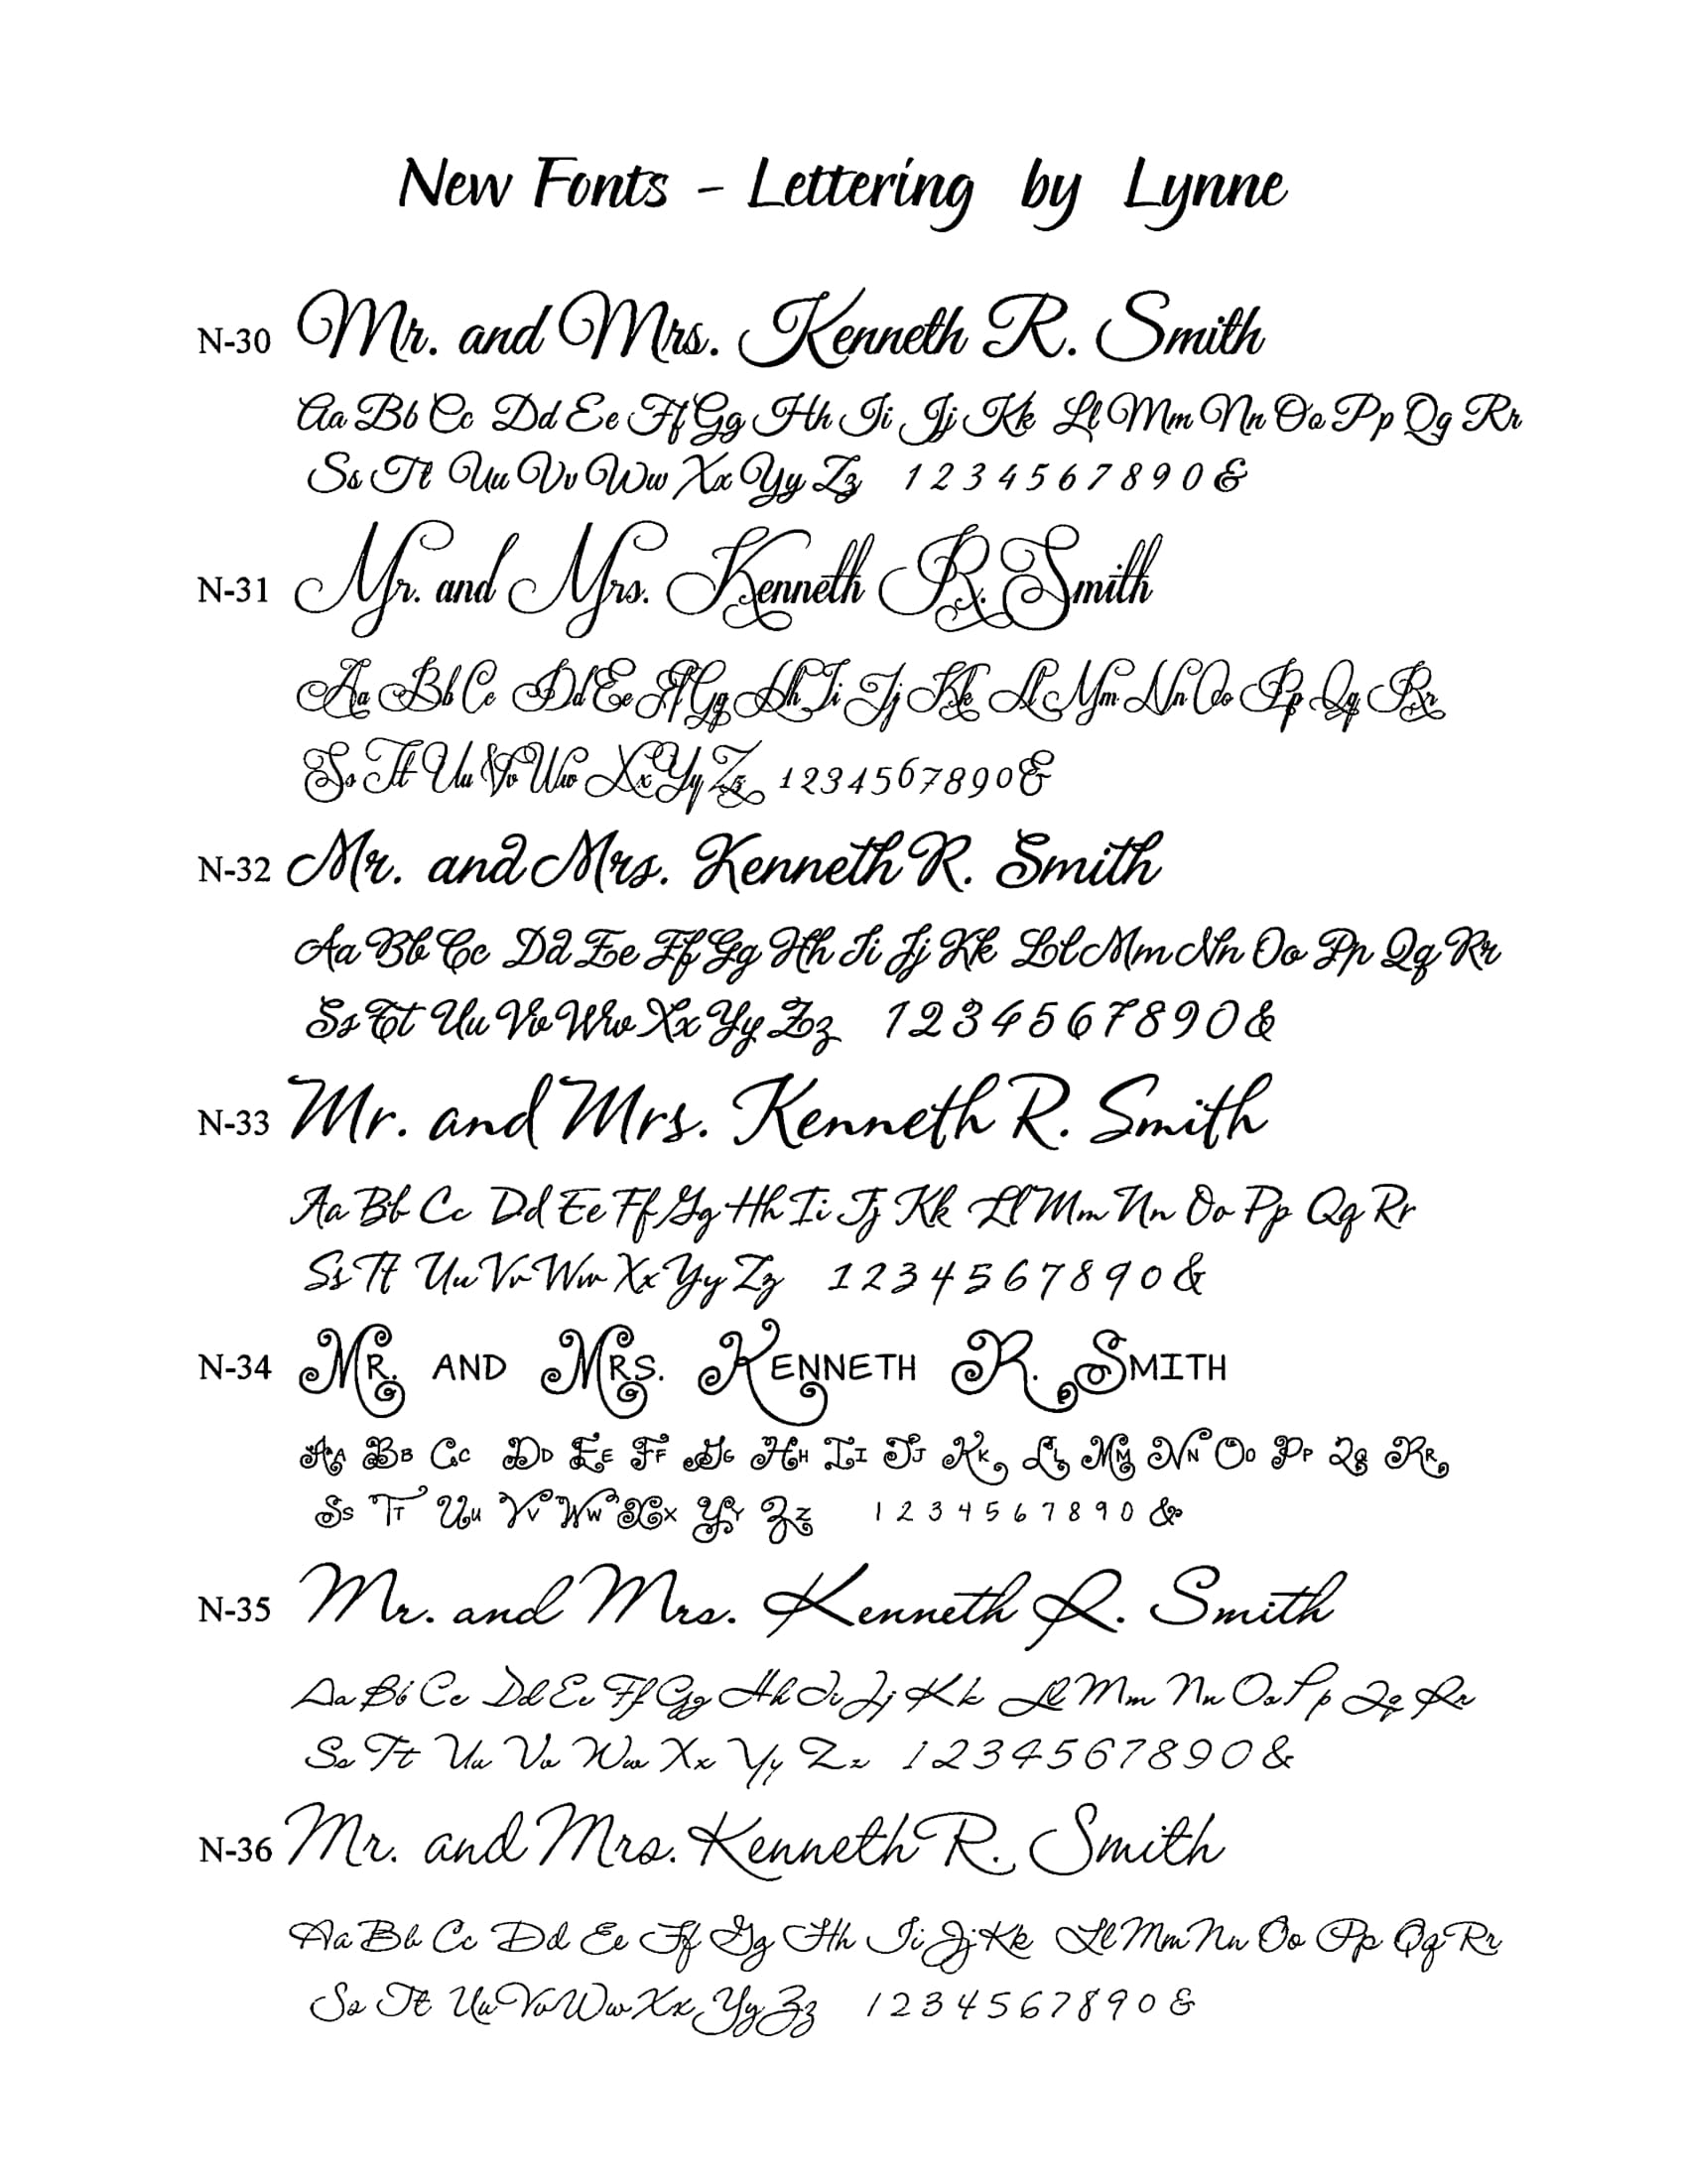 New Fonts - Lettering by Lynne
N-30 Mr. and Mrs. Kenneth R. Smith
Aa Bb Cc Dd Ee Ff Gg Hh Ii Jj Kk Ll Mm Nn Oo Pp Qq Rr
Ss Tt Uu Vv Ww Xx Yy Zz 1 2 3 4 5 6 7 8 9 0 &
N-31 Mr. and Mrs. Kenneth R. Smith
Aa Bb Cc Dd Ee Ff Gg Hh Ii Jj Kk Ll Mm Nn Oo Pp Qq Rr
Ss Tt Uu Vv Ww Xx Yy Zz 1 2 3 4 5 6 7 8 9 0 &
N-32 Mr. and Mrs. Kenneth R. Smith
Aa Bb Cc Dd Ee Ff Gg Hh Ii Jj Kk Ll Mm Nn Oo Pp Qq Rr
Ss Tt Uu Vv Ww Xx Yy Zz 1 2 3 4 5 6 7 8 9 0 &
N-33 Mr. and Mrs. Kenneth R. Smith
Aa Bb Cc Dd Ee Ff Gg Hh Ii Jj Kk Ll Mm Nn Oo Pp Qq Rr
Ss Tt Uu Vv Ww Xx Yy Zz 1 2 3 4 5 6 7 8 9 0 &
N-34 MR. AND MRS. KENNETH R. SMITH
AA BB CC DD EE FF GG HH II JJ KK LL MM NN OO PP QQ RR
SS TT UU VV WW XX YY ZZ 1 2 3 4 5 6 7 8 9 0 &
N-35 Mr. and Mrs. Kenneth R. Smith
Aa Bb Cc Dd Ee Ff Gg Hh Ii Jj Kk Ll Mm Nn Oo Pp Qq Rr
Ss Tt Uu Vv Ww Xx Yy Zz 1 2 3 4 5 6 7 8 9 0 &
N-36 Mr. and Mrs. Kenneth R. Smith
Aa Bb Cc Dd Ee Ff Gg Hh Ii Jj Kk Ll Mm Nn Oo Pp Qq Rr
Ss Tt Uu Vv Ww Xx Yy Zz 1 2 3 4 5 6 7 8 9 0 &